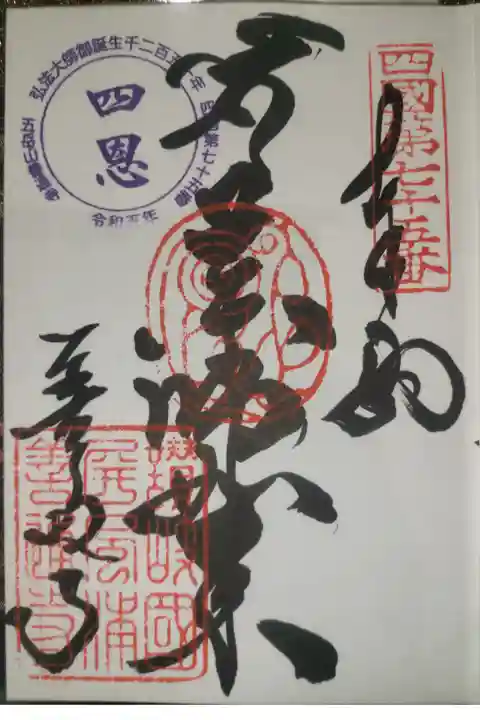 四國第七十五番
奉納
弘法大師御誕生千二百五十年
四国第七十五番
五岳山善通寺
四恩
令和五年
善通寺
讃岐國
屏風浦
善通寺